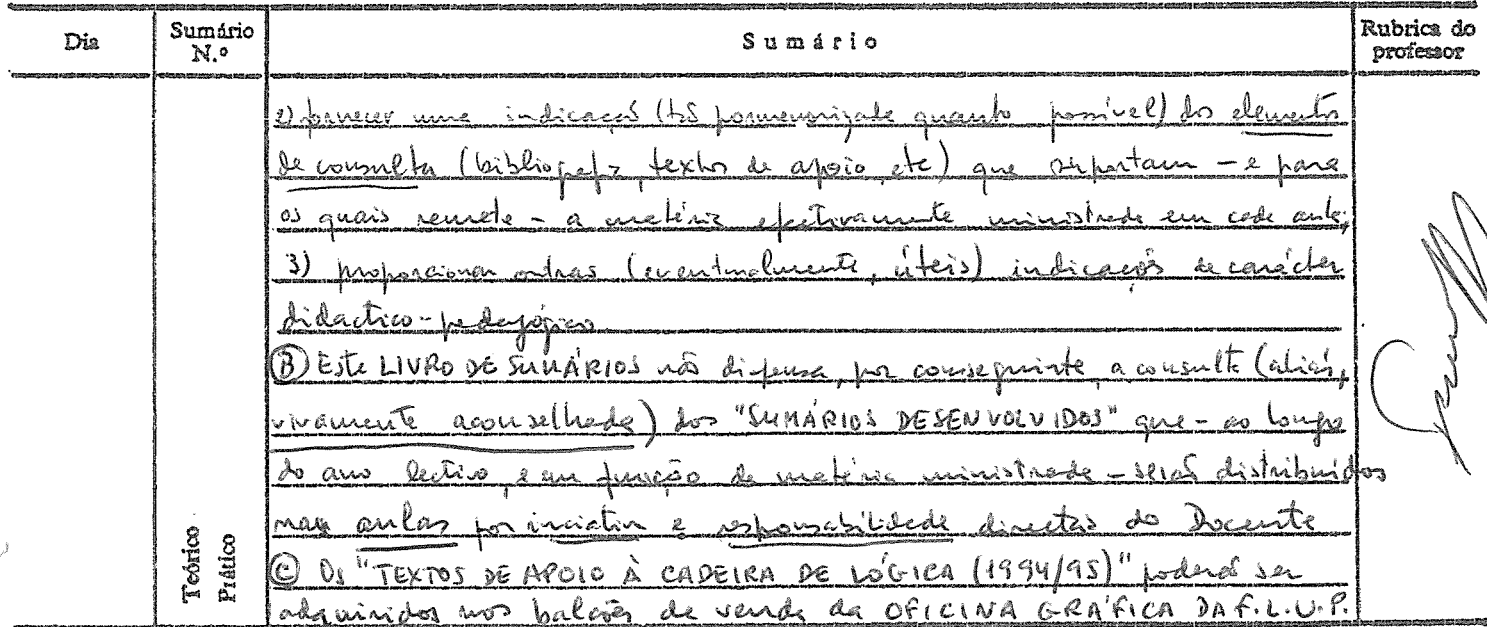 Dia
Sumário N.º
Sumário
Rubrica do professor
2) fornecer uma indicação (tão pormenorizada quanto possível) dos elementos
de consulta (bibliografia, textos de apoio, etc) que suportam - e para
os quais remete - a matéria efectivamente ministrada em cada aula;
3) proporcionar outras (eventualmente, úteis) indicações de carácter
didactico-pedagógico
(B) Este LIVRO DE SUMÁRIOS não dispensa, por conseguinte, a consulta (aliás,
vivamente aconselhada) dos "SUMÁRIOS DESENVOLVIDOS" que - ao longo
do ano lectivo, e em função da matéria ministrada - serão distribuídos
nas aulas por iniciativa e responsabilidade directas do Docente
(C) Os "TEXTOS DE APOIO À CADEIRA DE LÓGICA (1994/95)" poderão ser
adquiridos nos balcões de venda da OFICINA GRÁFICA DA F.L.U.P.
Teórico
Prático